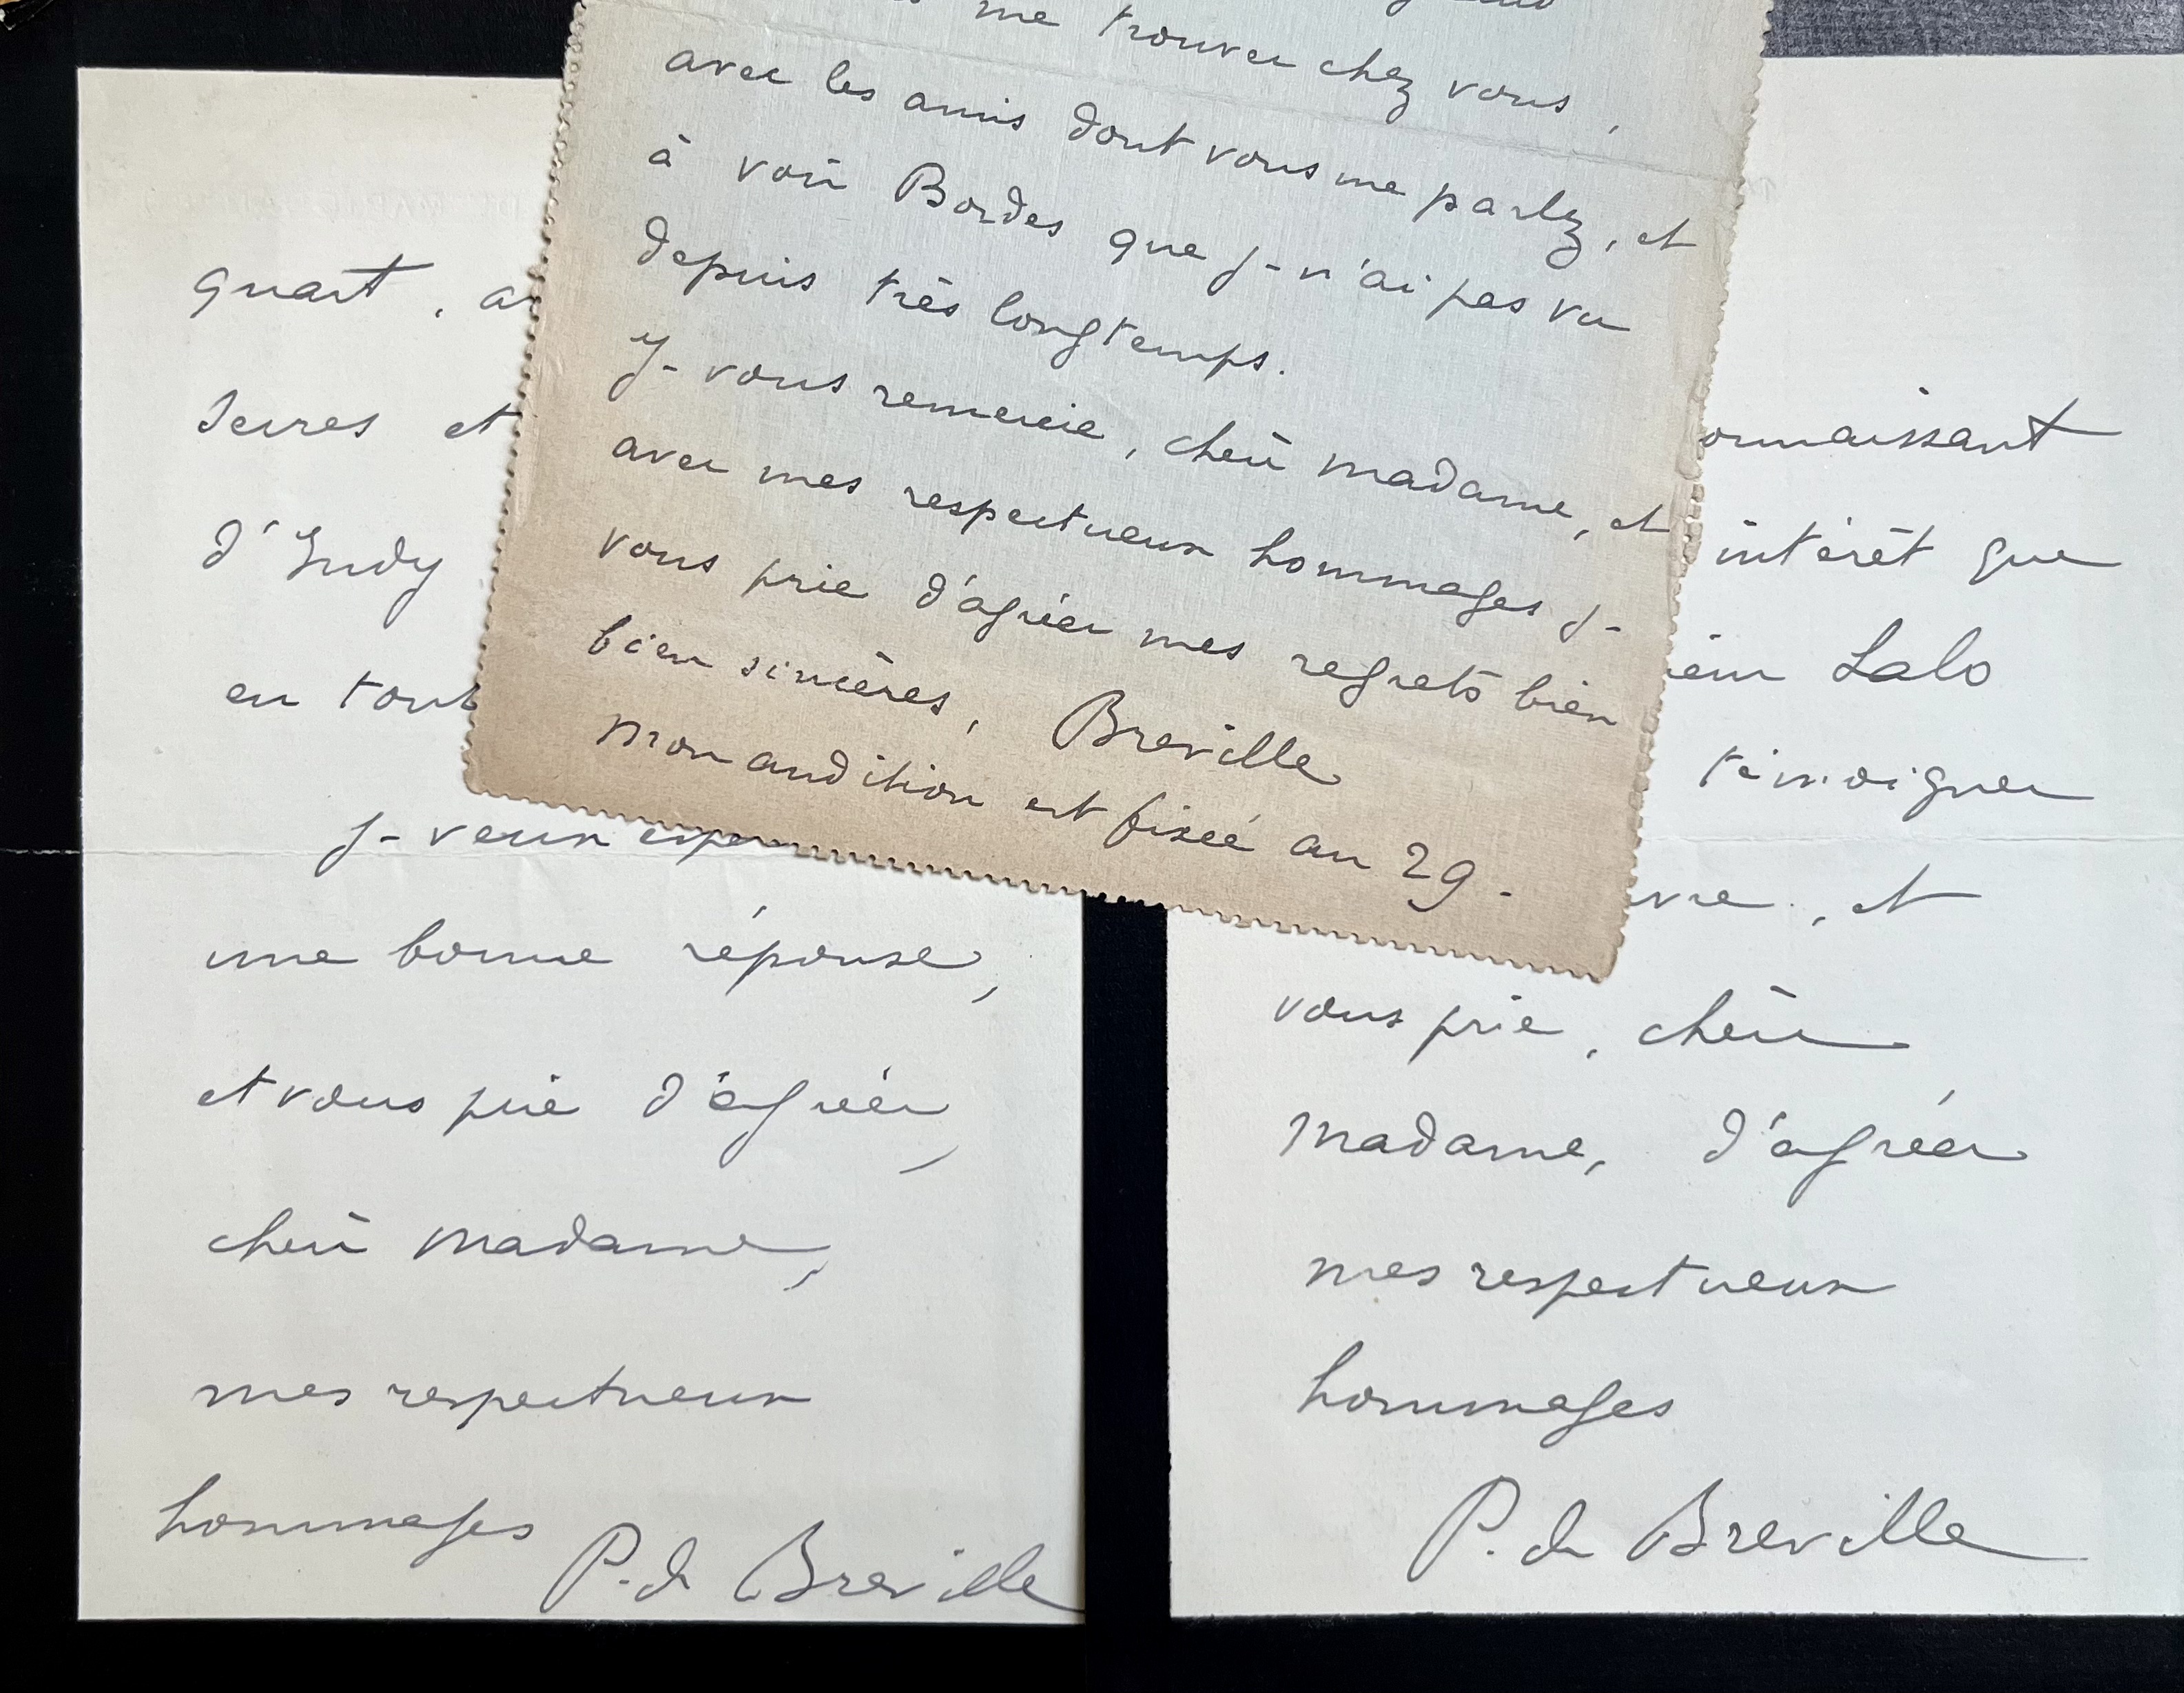 me trouver chez vous,
avec les amis dont vous me parlez, et
à voir Bordes que je n'ai pas vu
depuis très longtemps.
Je vous remercie, chère madame, et
avec mes respectueux hommages je
vous prie d'agréer mes regrets bien
bien sincères, Breville
Mon audition est fixée au 29.
quart, a
et
d'Indy
en tout
Je veux espe
une bonne réponse,
et vous prie d'agréer,
chère Madame,
mes respectueux
hommages P. de Breville
onnaissant
intérêt que
Lalo
témoigner
vre, et
vous prie, chère
Madame, d'agréer
mes respectueux
hommages
P. de Breville